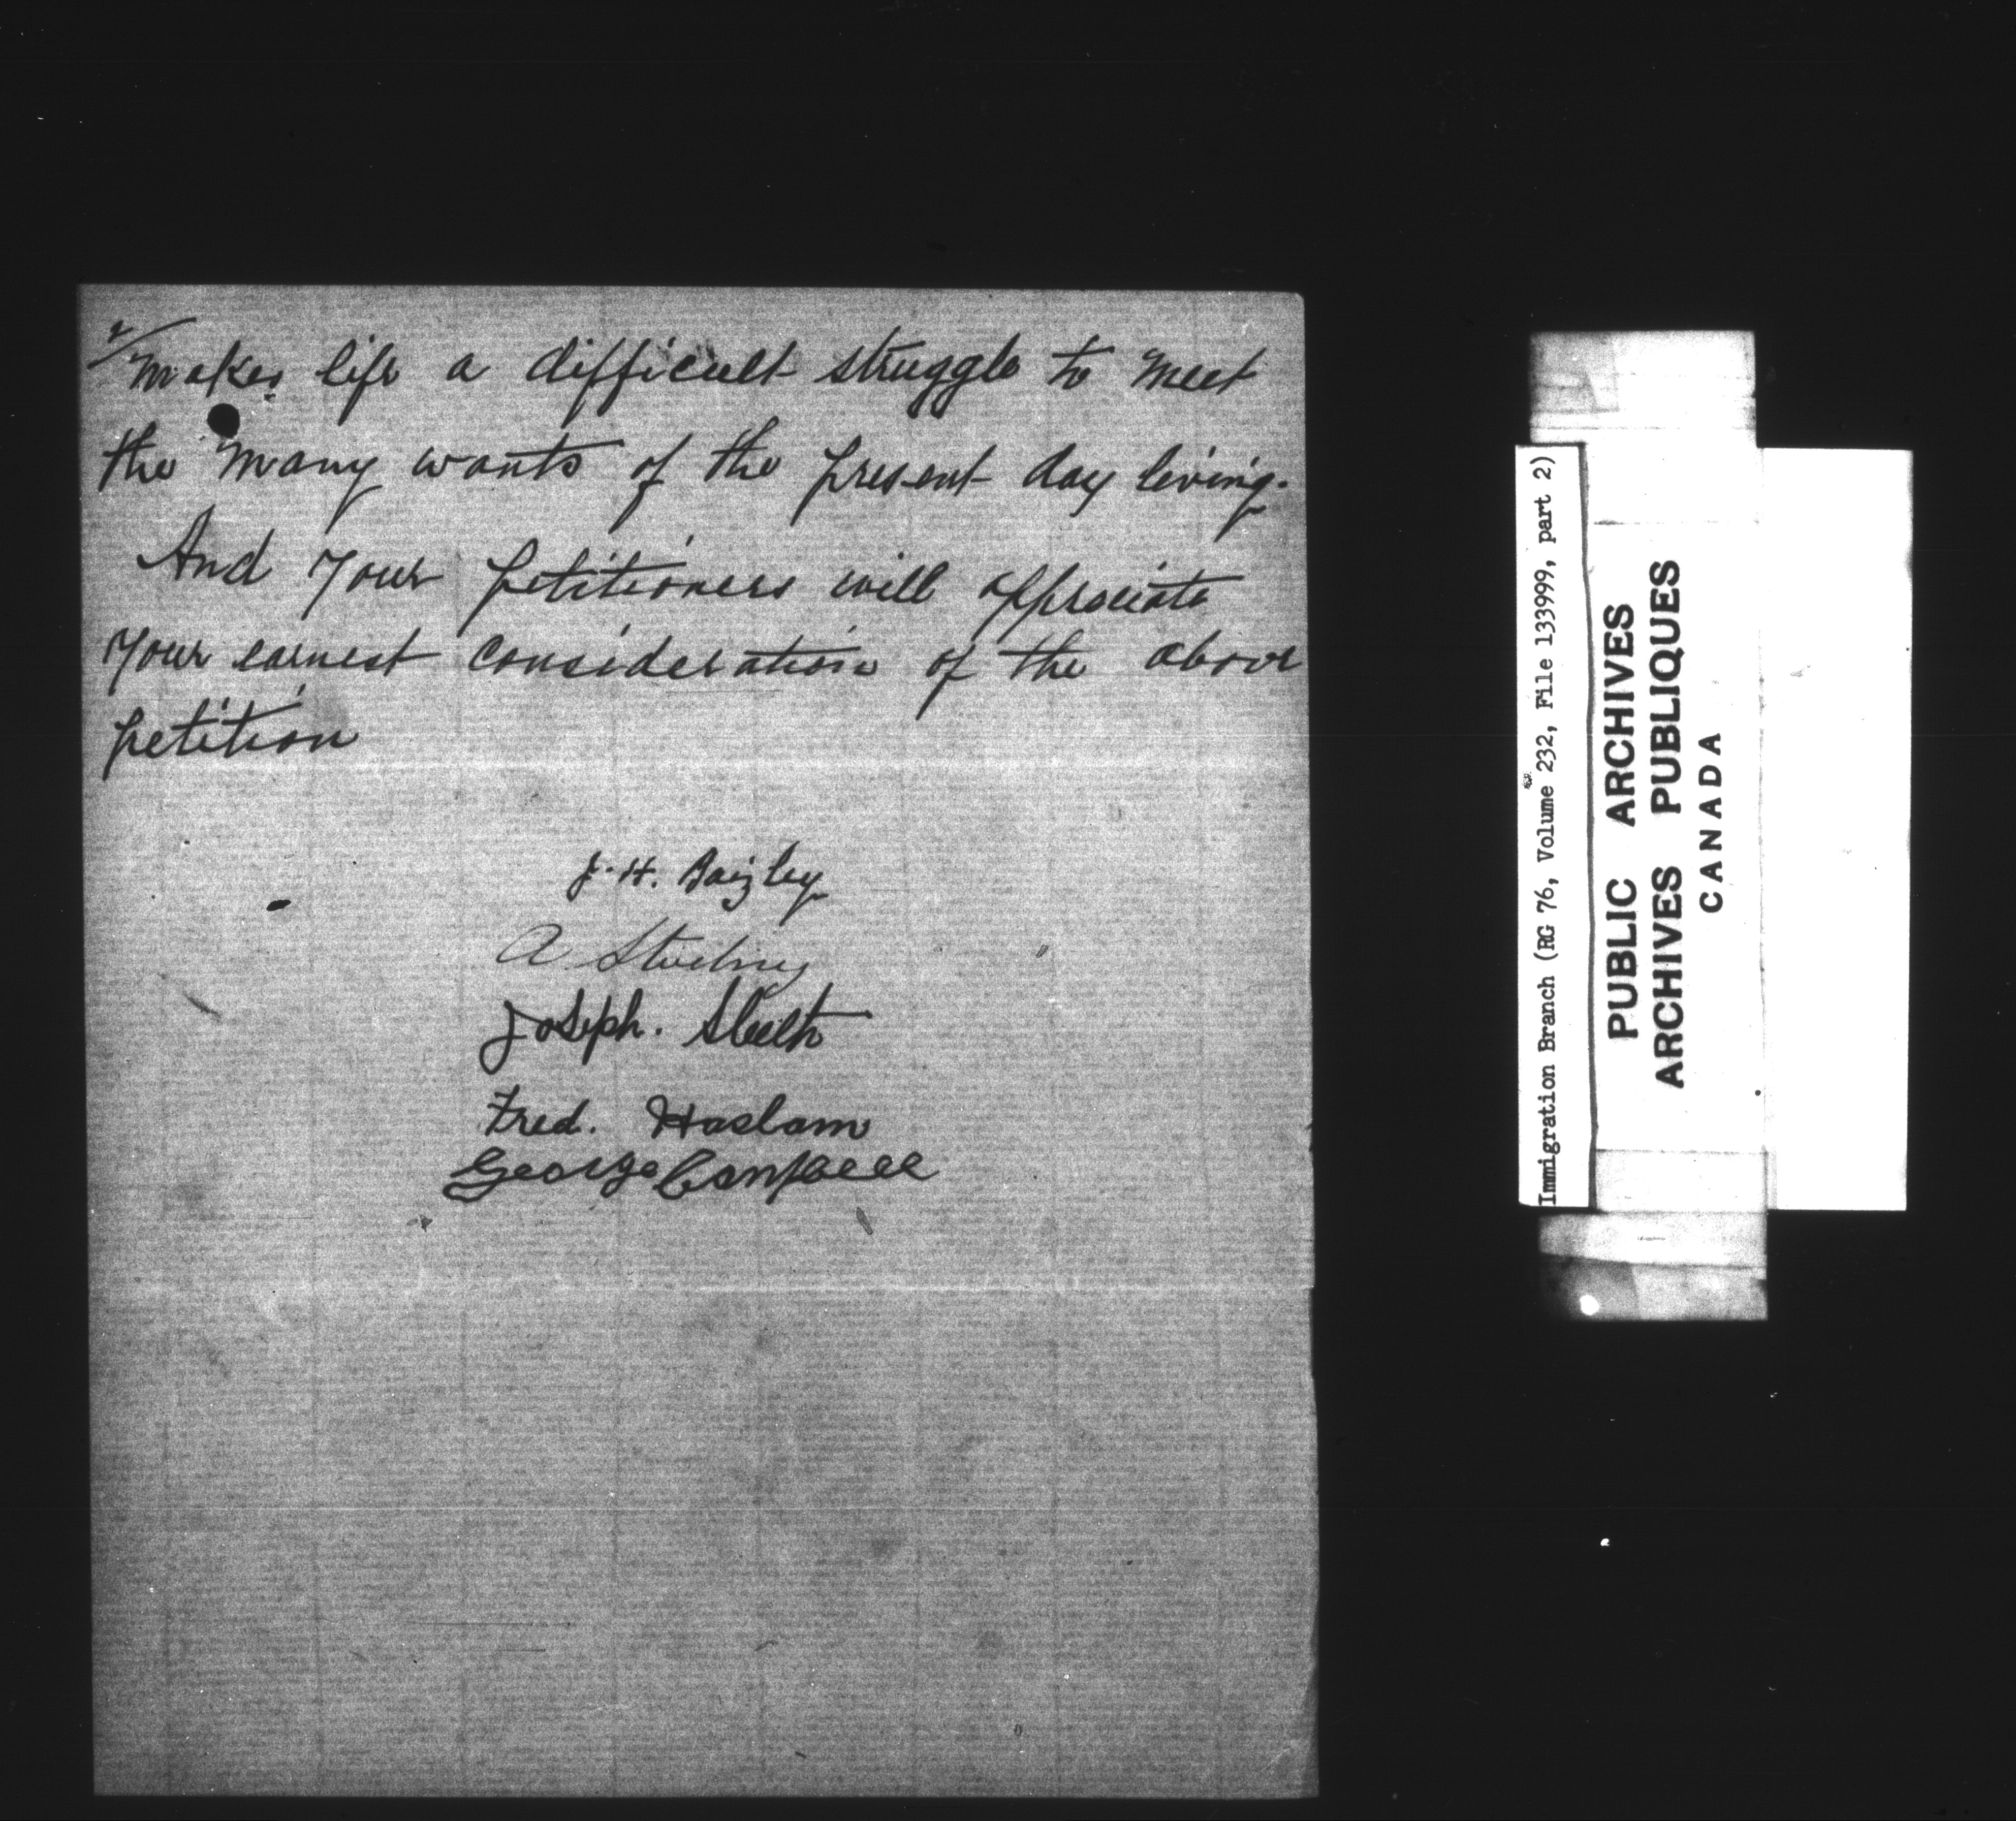 2/
makes life a difficult struggle to meet
the many wants of the present day living.
And your petitioners will appreciate
your earnest consideration of the above
petition
J. H. Baizley
A
Joseph. Sleeth
Fred. Haslam
George Campbell
Immigration Branch (RG 76, Volume 232, File 133999, part 2)
PUBLIC ARCHIVES
ARCHIVES PUBLIQUES
CANADA